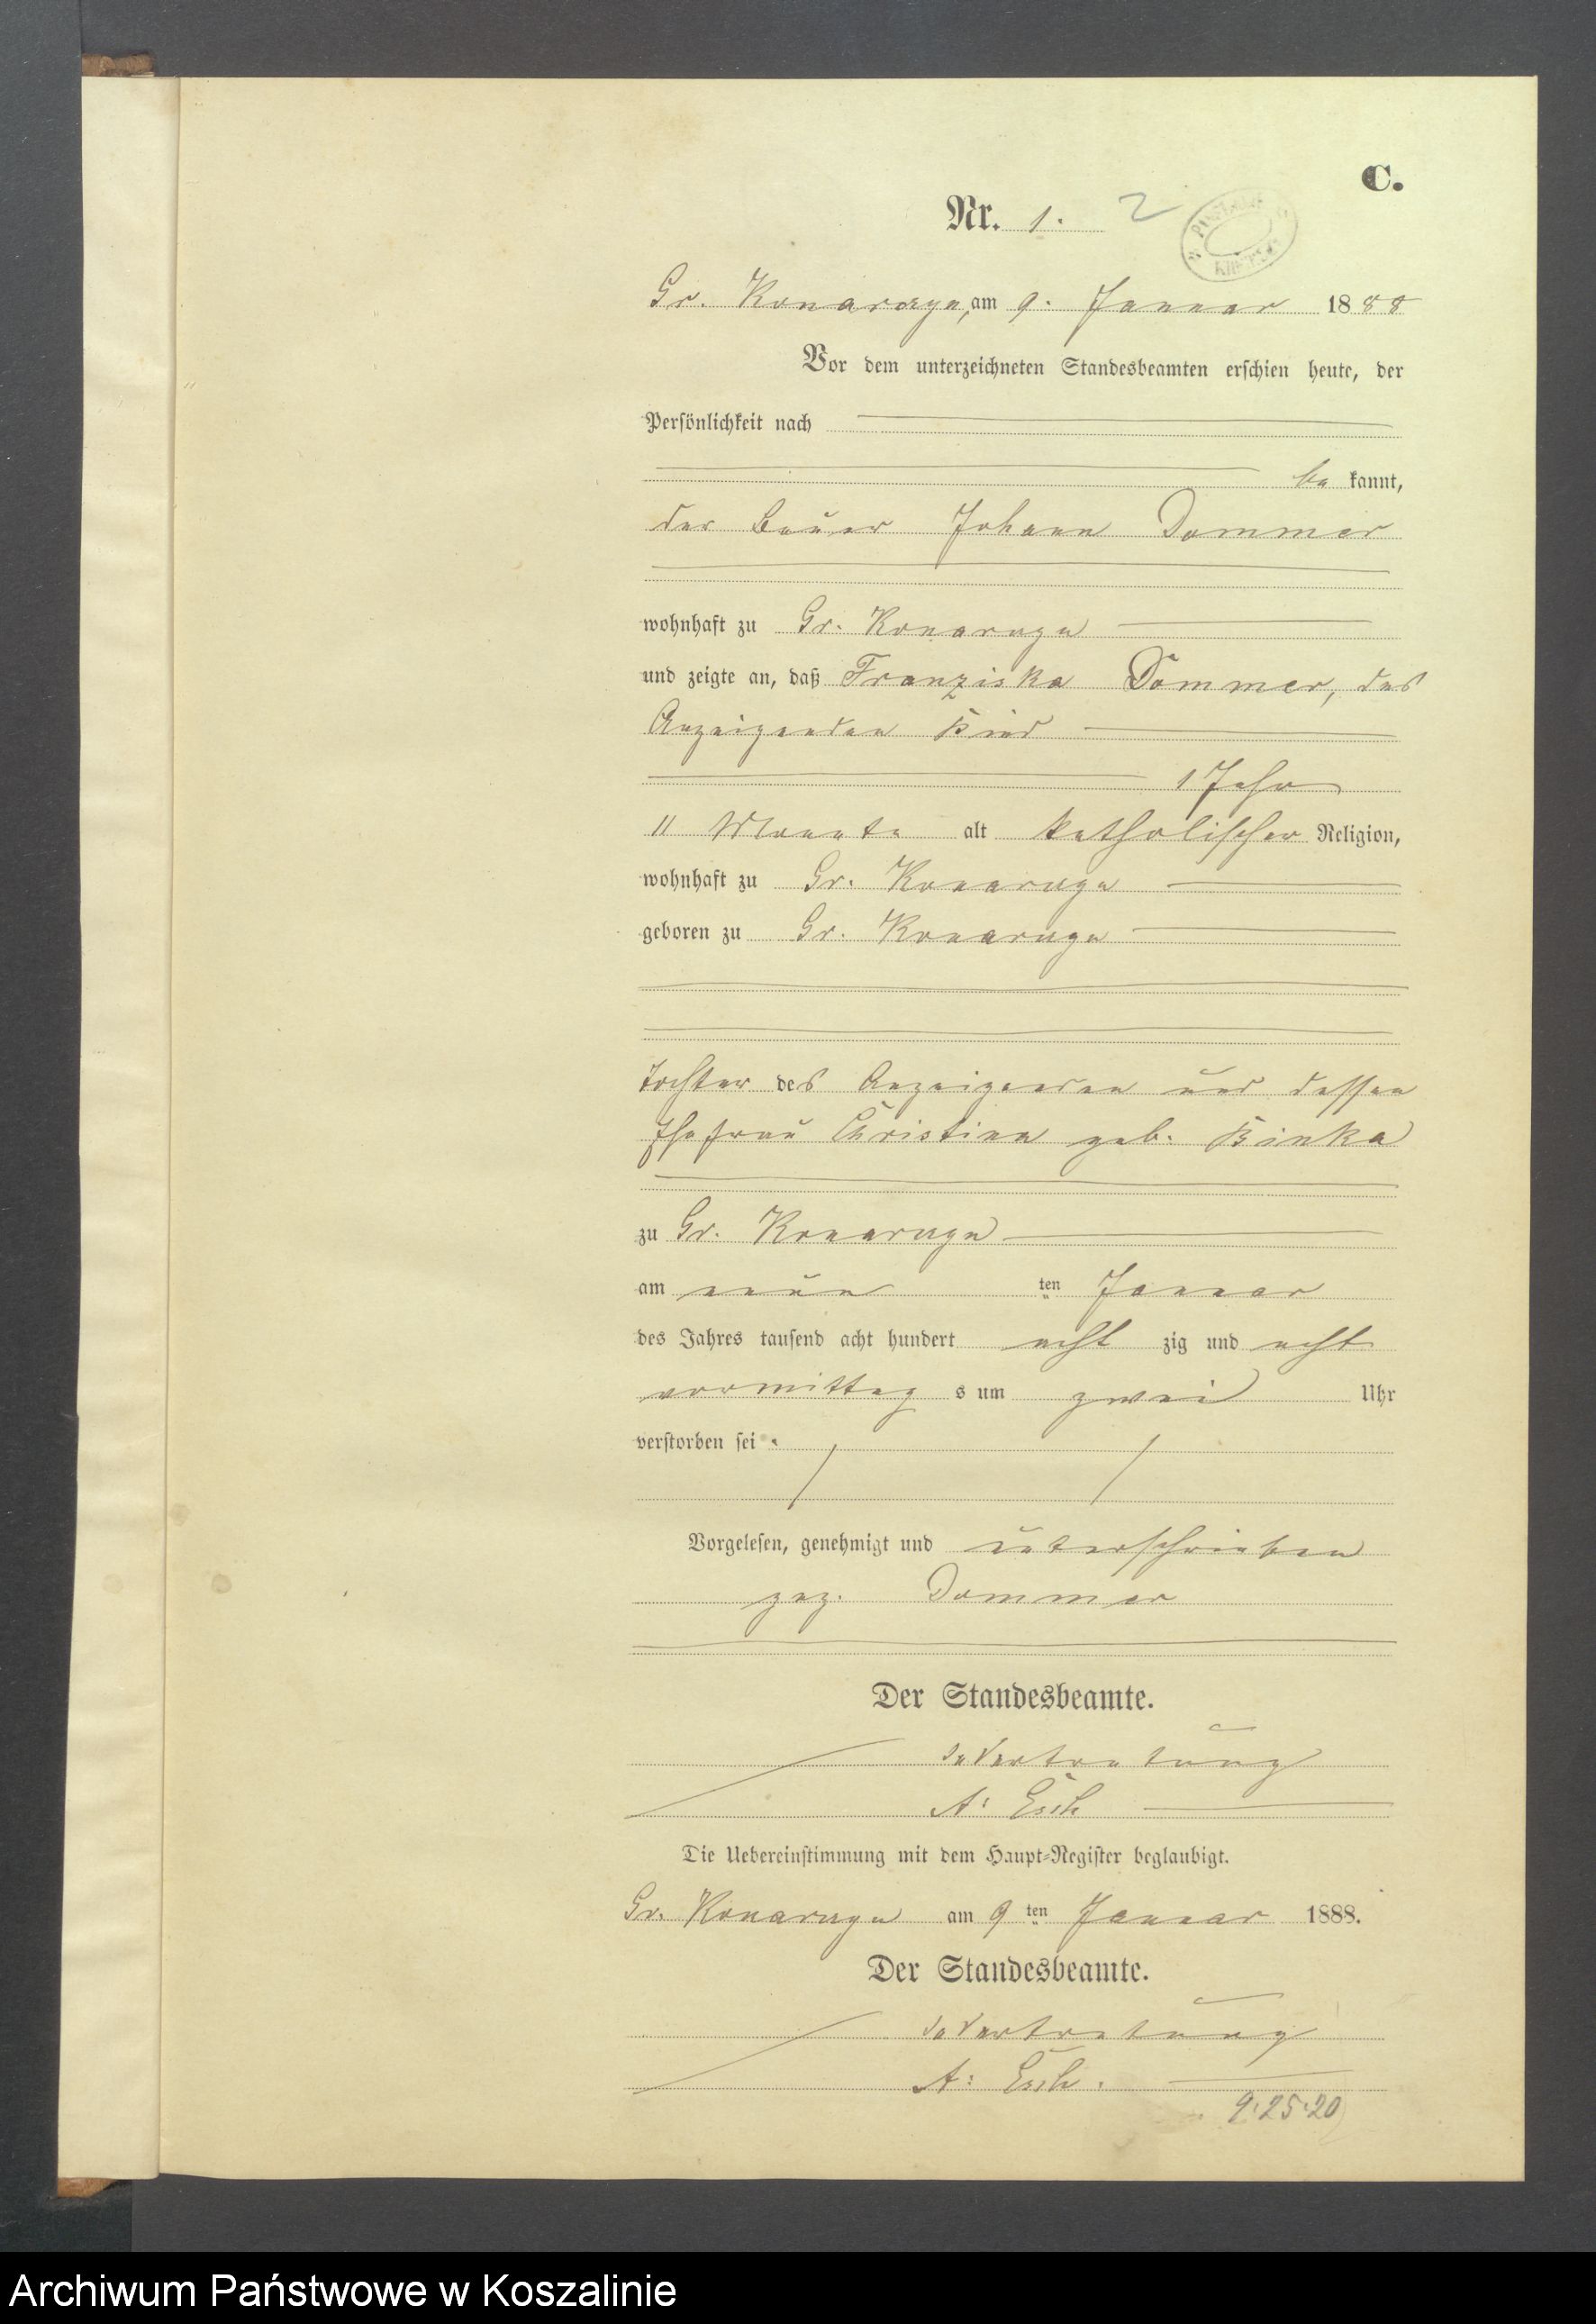 C.
Nr. 1. 2
Gr. Konarczyn, am 9. Januar 1888
Vor dem unterzeichneten Standesbeamten erschien heute, der
Persönlichkeit nach
be kannt,
der Bauer Johann Dommer
wohnhaft zu Gr. Konarczyn
und zeigte an, daß Franziska Dommer, des
Anzeigenden Kind
1 Jahr
11 Monate alt katholischer Religion,
wohnhaft zu Gr. Konarczyn
geboren zu Gr. Konarczyn
Tochter des Anzeigenden und dessen
Ehefrau Christine geb. Binka
zu Gr. Konarczyn
am neun ten Januar
des Jahres tausend acht hundert acht zig und acht
vormittag s um zwei Uhr
verstorben sei
Vorgelesen, genehmigt und unterschrieben
gez. Dommer
Der Standesbeamte.
In Vertretung
A: Esch
Die Uebereinstimmung mit dem Haupt-Register beglaubigt.
Gr. Konarczyn am 9 ten Januar 1888.
Der Standesbeamte.
In Vertretung
A: Esch.
9.25.20
Archiwum Państwowe w Koszalinie